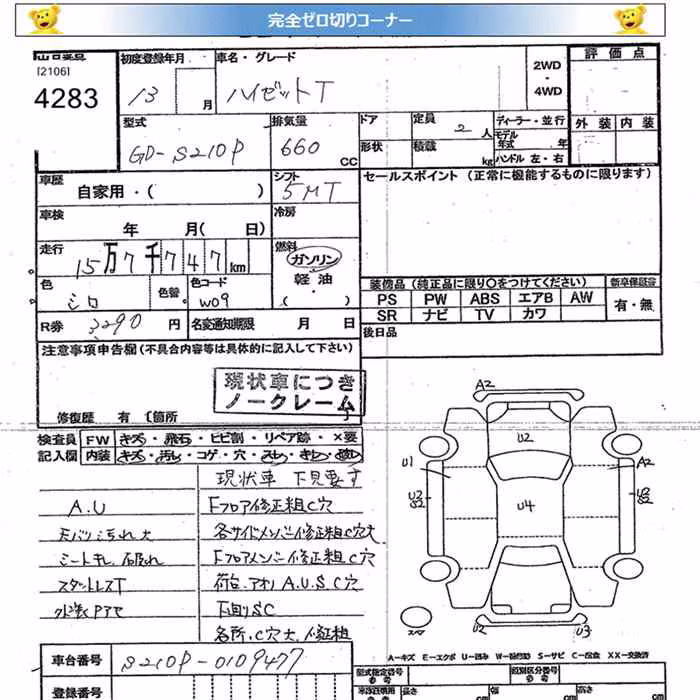 完全ゼロ切りコーナー
[2106]
4283
初度登録年月
13 月
車名・グレード
ハイゼットT
2WD
・
4WD
評価点
外装 内装
型式
GD-S210P
排気量
660 CC
ドア
形状
定員 2 人
積載 kg
ディーラー・並行
モデル年式 年
ハンドル 左・右
車歴
自家用・( )
シフト
5MT
セールスポイント (正常に機能するものに限ります)
車検
年 月( 日)
冷房
走行
15万7千747km
燃料
ガソリン
軽油
( )
色
シロ
色替
色コード
W09
装備品 (純正品に限り○をつけてください) 新車保証書
PS PW ABS エアB AW 有・無
SR ナビ TV カワ
R券 3290 円
名変通知期限 月 日
後日品
注意事項申告欄 (不具合内容等は具体的に記入して下さい)
現状車につき
ノークレーム
修復歴 有 〔箇所
検査員
記入欄
FW キズ・飛石・ヒビ割・リペア跡・×要
内装 キズ・汚し・コゲ・穴・
現状車 下見要す
A.U Fフロア修正粗C穴
モバツ汚れ大 各サイドメンバー修正粗C穴大
シートキレ、破れ Fフロアメンバー修正粗C穴
スタットレスT 荷台、アオリ A.U.S.C穴
外装Pアセ 下回りSC
各所、C穴大、修正粗
A2
U2
U1
A2
U3
S2
U4
U2
S2
スペア
U2
U3
A-キズ E-エクボ U-凹み W-板金跡 S-サビ C-腐食 XX-交換済
車台番号 S210P-0109477
型式指定番号
類別区分番号
登録番号
長さ cm
幅 cm
高さ cm